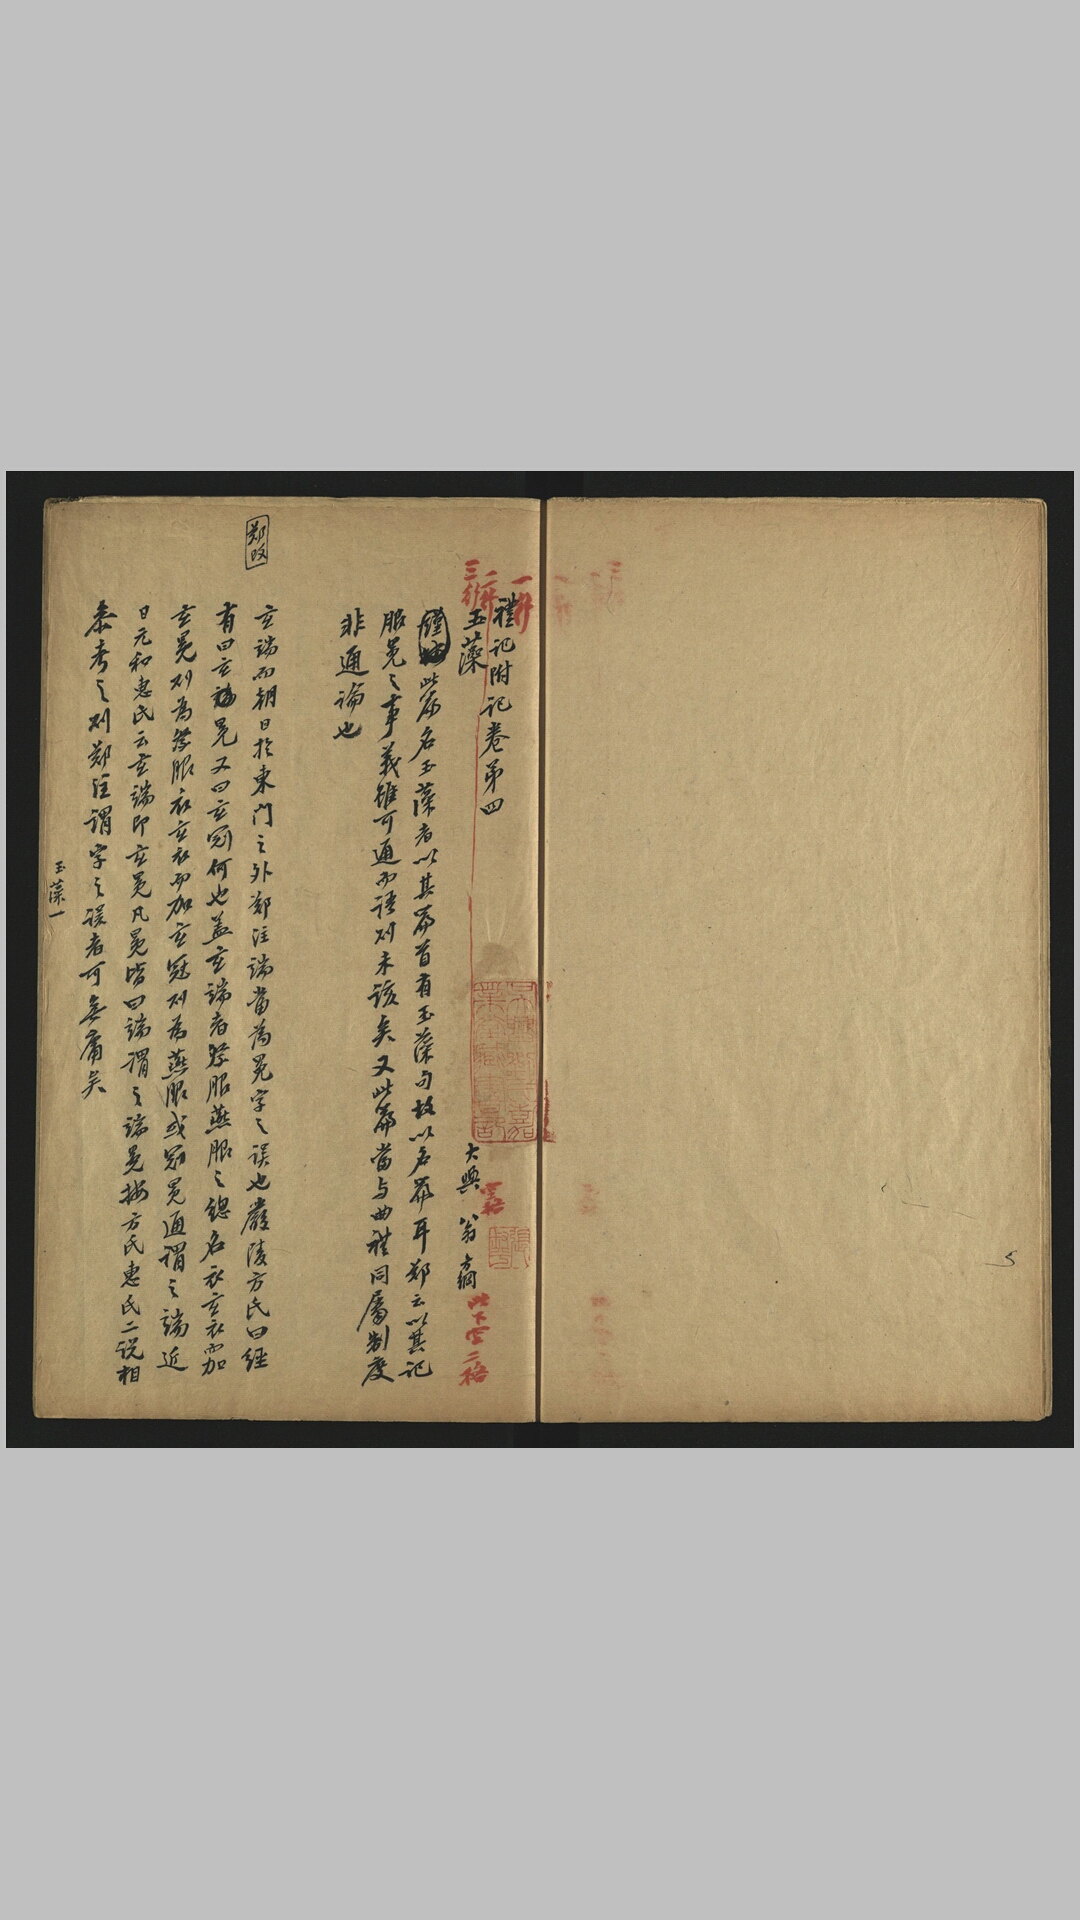 禮記附記卷第四
玉藻
大興 翁方綱
此篇名玉藻者以其篇首有玉藻句故以名篇耳鄭云以其記
服冕之事義雖可通而語則未該矣又此篇當与曲禮同屬制度
非通論也
鄭改
玄端而朝日於東門之外鄭注端當為冕字之誤也嚴陵方氏曰經
有曰玄端冕又曰玄冠何也蓋玄端者祭服燕服之總名衣玄衣而加
玄冕則為祭服衣玄衣而加玄冠則為燕服或冠冕通謂之端近
日元和惠氏云玄端即玄冕凡冕皆曰端謂之端冕按方氏惠氏二说相
參考之則鄭注謂字之误者可無庸矣
玉藻一
一行
二行
三行
空二格
此下空二格